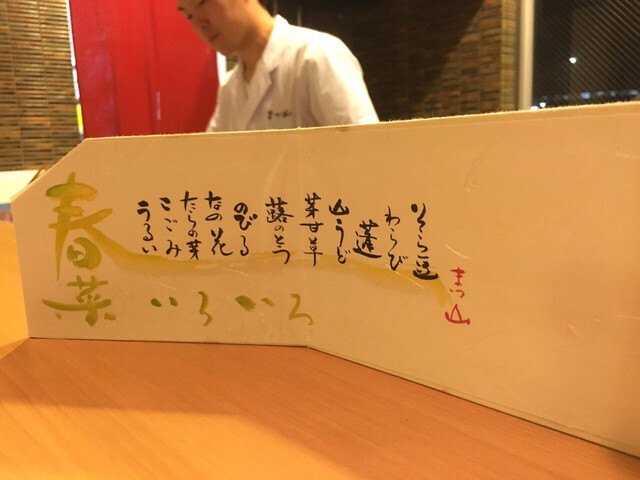 まつ山
そら豆
わらび
蓬
山うど
芽甘草
蕗のとう
のびる
なの花
たらの芽
こごみ
うるい
春菜
いろいろ